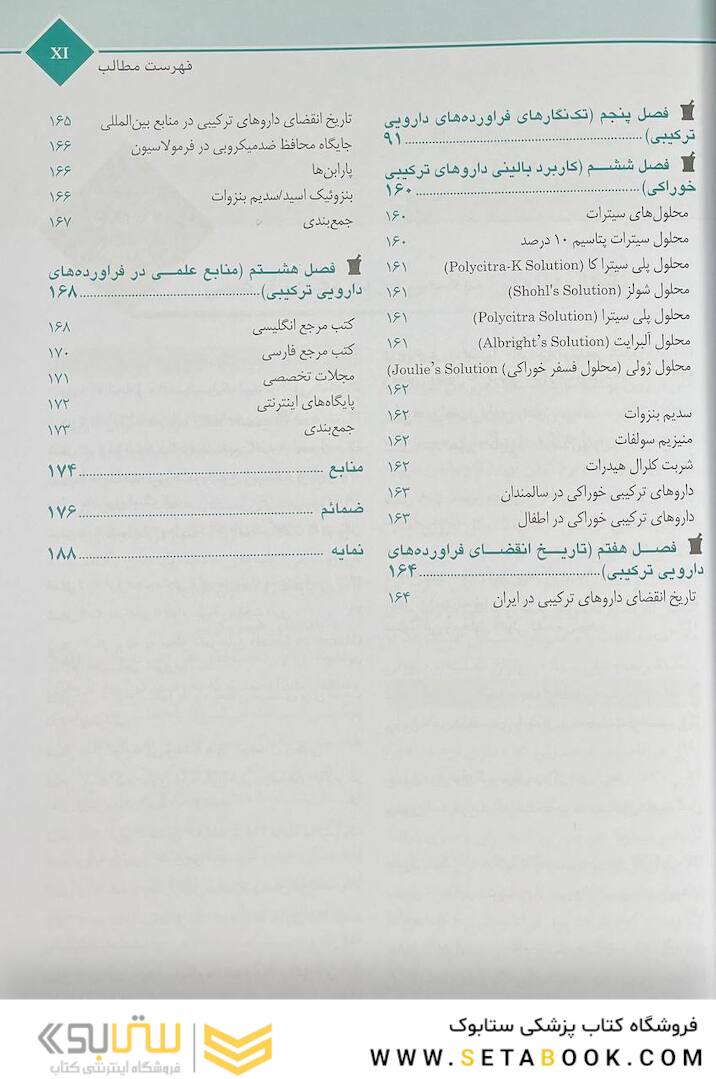 XI
فهرست مطالب
فصل پنجم (تک‌نگارهای فراورده‌های دارویی
ترکیبی) ۹۱
فصل ششم (کاربرد بالینی داروهای ترکیبی
خوراکی) ۱۶۰
محلول‌های سیترات ۱۶۰
محلول سیترات پتاسیم ۱۰ درصد ۱۶۰
محلول پلی سیترا کا (Polycitra-K Solution) ۱۶۱
محلول شولز (Shohl's Solution) ۱۶۱
محلول پلی سیترا (Polycitra Solution) ۱۶۱
محلول آلبرایت (Albright's Solution) ۱۶۱
محلول ژولی (محلول فسفر خوراکی) (Joulie's Solution
۱۶۲
سدیم بنزوات ۱۶۲
منیزیم سولفات ۱۶۲
شربت کلرال هیدرات ۱۶۲
داروهای ترکیبی خوراکی در سالمندان ۱۶۳
داروهای ترکیبی خوراکی در اطفال ۱۶۳
فصل هفتم (تاریخ انقضای فراورده‌های
دارویی ترکیبی) ۱۶۴
تاریخ انقضای داروهای ترکیبی در ایران ۱۶۴
تاریخ انقضای داروهای ترکیبی در منابع بین‌المللی ۱۶۵
جایگاه محافظ ضدمیکروبی در فرمولاسیون ۱۶۶
پارابن‌ها ۱۶۶
بنزوئیک اسید/سدیم بنزوات ۱۶۶
جمع‌بندی ۱۶۷
فصل هشتم (منابع علمی در فراورده‌های
دارویی ترکیبی) ۱۶۸
کتب مرجع انگلیسی ۱۶۸
کتب مرجع فارسی ۱۷۰
مجلات تخصصی ۱۷۱
پایگاه‌های اینترنتی ۱۷۲
جمع‌بندی ۱۷۳
منابع ۱۷۴
ضمائم ۱۷۶
نمایه ۱۸۸
فروشگاه کتاب پزشکی ستابوک
WWW.SETABOOK.COM
ستابوک
فروشگاه اینترنتی کتاب